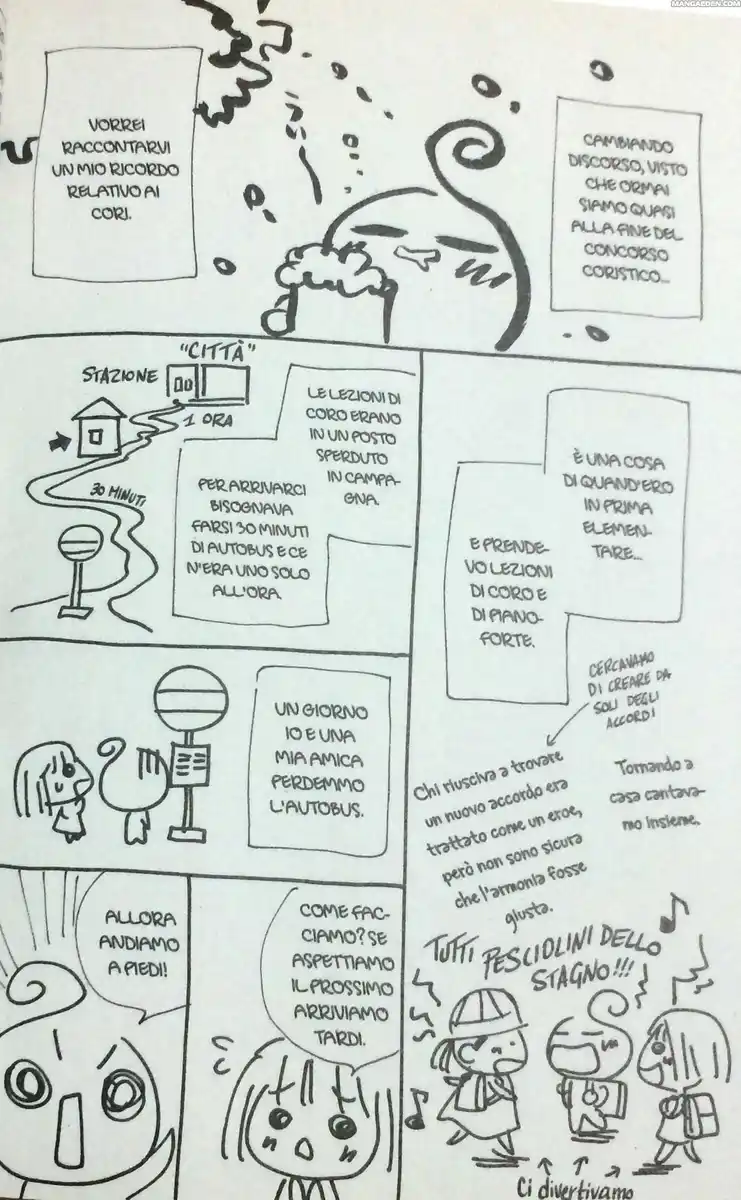 MANGAEDEN.COM
CAMBIANDO
DISCORSO, VISTO
CHE ORMAI
SIAMO QUASI
ALLA FINE DEL
CONCORSO
CORISTICO...
VORREI
RACCONTARVI
UN MIO RICORDO
RELATIVO AI
CORI.
È UNA COSA
DI QUAND'ERO
IN PRIMA
ELEMEN-
TARE...
E PRENDE-
VO LEZIONI
DI CORO E
DI PIANO-
FORTE.
CERCAVAMO
DI CREARE DA
SOLI DEGLI
ACCORDI
Tornando a
casa cantava-
mo insieme.
Chi riusciva a trovare
un nuovo accordo era
trattato come un eroe,
però non sono sicura
che l'armonia fosse
giusta.
TUTTI PESCIOLINI DELLO
STAGNO!!!
Ci divertivamo
"CITTÀ"
STAZIONE
1 ORA
30 MINUTI
LE LEZIONI DI
CORO ERANO
IN UN POSTO
SPERDUTO
IN CAMPA-
GNA.
PER ARRIVARCI
BISOGNAVA
FARSI 30 MINUTI
DI AUTOBUS E CE
N'ERA UNO SOLO
ALL'ORA.
UN GIORNO
IO E UNA
MIA AMICA
PERDEMMO
L'AUTOBUS.
COME FAC-
CIAMO? SE
ASPETTIAMO
IL PROSSIMO
ARRIVIAMO
TARDI.
ALLORA
ANDIAMO
A PIEDI!